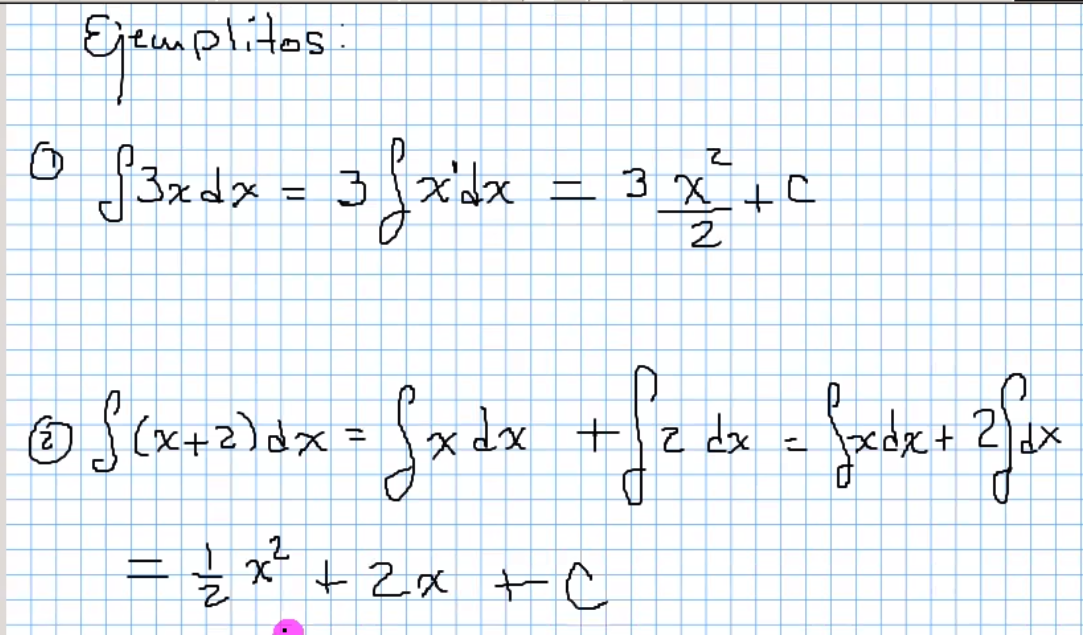 Ejemplitos:
① ∫3xdx = 3∫x¹dx = 3 x²/2 + C
② ∫(x+2)dx = ∫x dx + ∫2 dx = ∫xdx + 2∫dx
= 1/2 x² + 2x + C